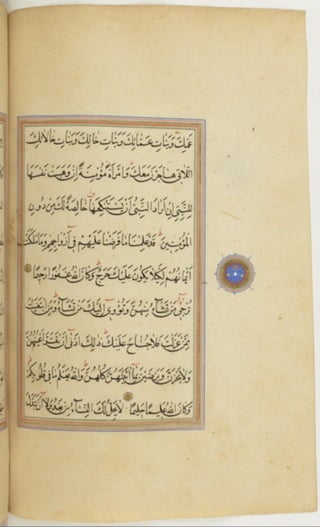 عَمِّكَ وَبَنَاتِ عَمَّاتِكَ وَبَنَاتِ خَالِكَ وَبَنَاتِ خَالَاتِكَ
اللَّاتِي هَاجَرْنَ مَعَكَ وَامْرَأَةً مُؤْمِنَةً إِنْ وَهَبَتْ نَفْسَهَا
لِلنَّبِيِّ إِنْ أَرَادَ النَّبِيُّ أَنْ يَسْتَنْكِحَهَا خَالِصَةً لَكَ مِنْ دُونِ
الْمُؤْمِنِينَ قَدْ عَلِمْنَا مَا فَرَضْنَا عَلَيْهِمْ فِي أَزْوَاجِهِمْ وَمَا مَلَكَتْ
أَيْمَانُهُمْ لِكَيْلَا يَكُونَ عَلَيْكَ حَرَجٌ وَكَانَ اللَّهُ غَفُورًا رَحِيمًا
تُرْجِي مَنْ تَشَاءُ مِنْهُنَّ وَتُؤْوِي إِلَيْكَ مَنْ تَشَاءُ وَمَنِ ابْتَغَيْتَ
مِمَّنْ عَزَلْتَ فَلَا جُنَاحَ عَلَيْكَ ذَلِكَ أَدْنَى أَنْ تَقَرَّ أَعْيُنُهُنَّ
وَلَا يَحْزَنَّ وَيَرْضَيْنَ بِمَا آتَيْتَهُنَّ كُلُّهُنَّ وَاللَّهُ يَعْلَمُ مَا فِي قُلُوبِكُمْ
وَكَانَ اللَّهُ عَلِيمًا حَلِيمًا لَا يَحِلُّ لَكَ النِّسَاءُ مِنْ بَعْدُ وَلَا أَنْ تَبَدَّلَ